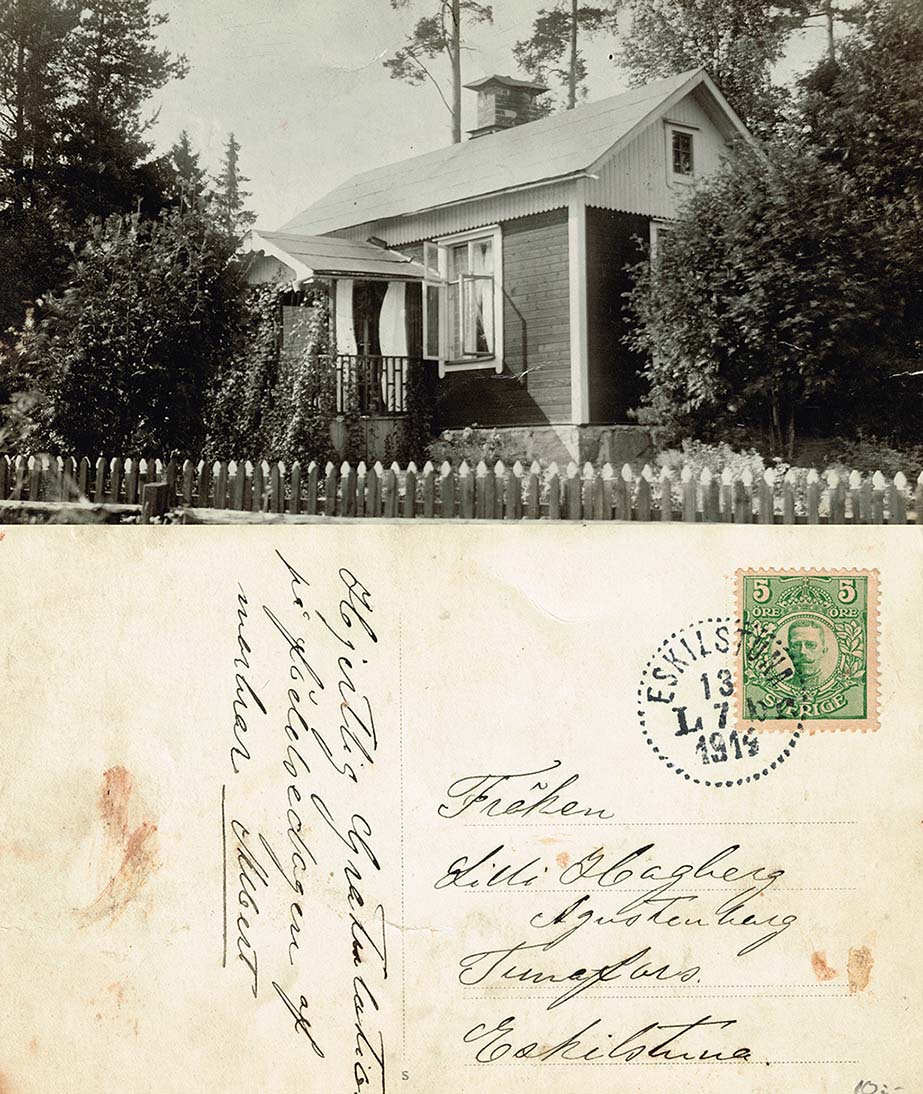 Hjertlig Gratulation
på födelsedagen af
morbror Albert
5 5
ÖRE ÖRE
SVERIGE
ESKILSTUNA
13
L 7
1914
Fröken
Lilli Hagberg
Agustenberg
Tunafors.
Eskilstuna.
S
10:-